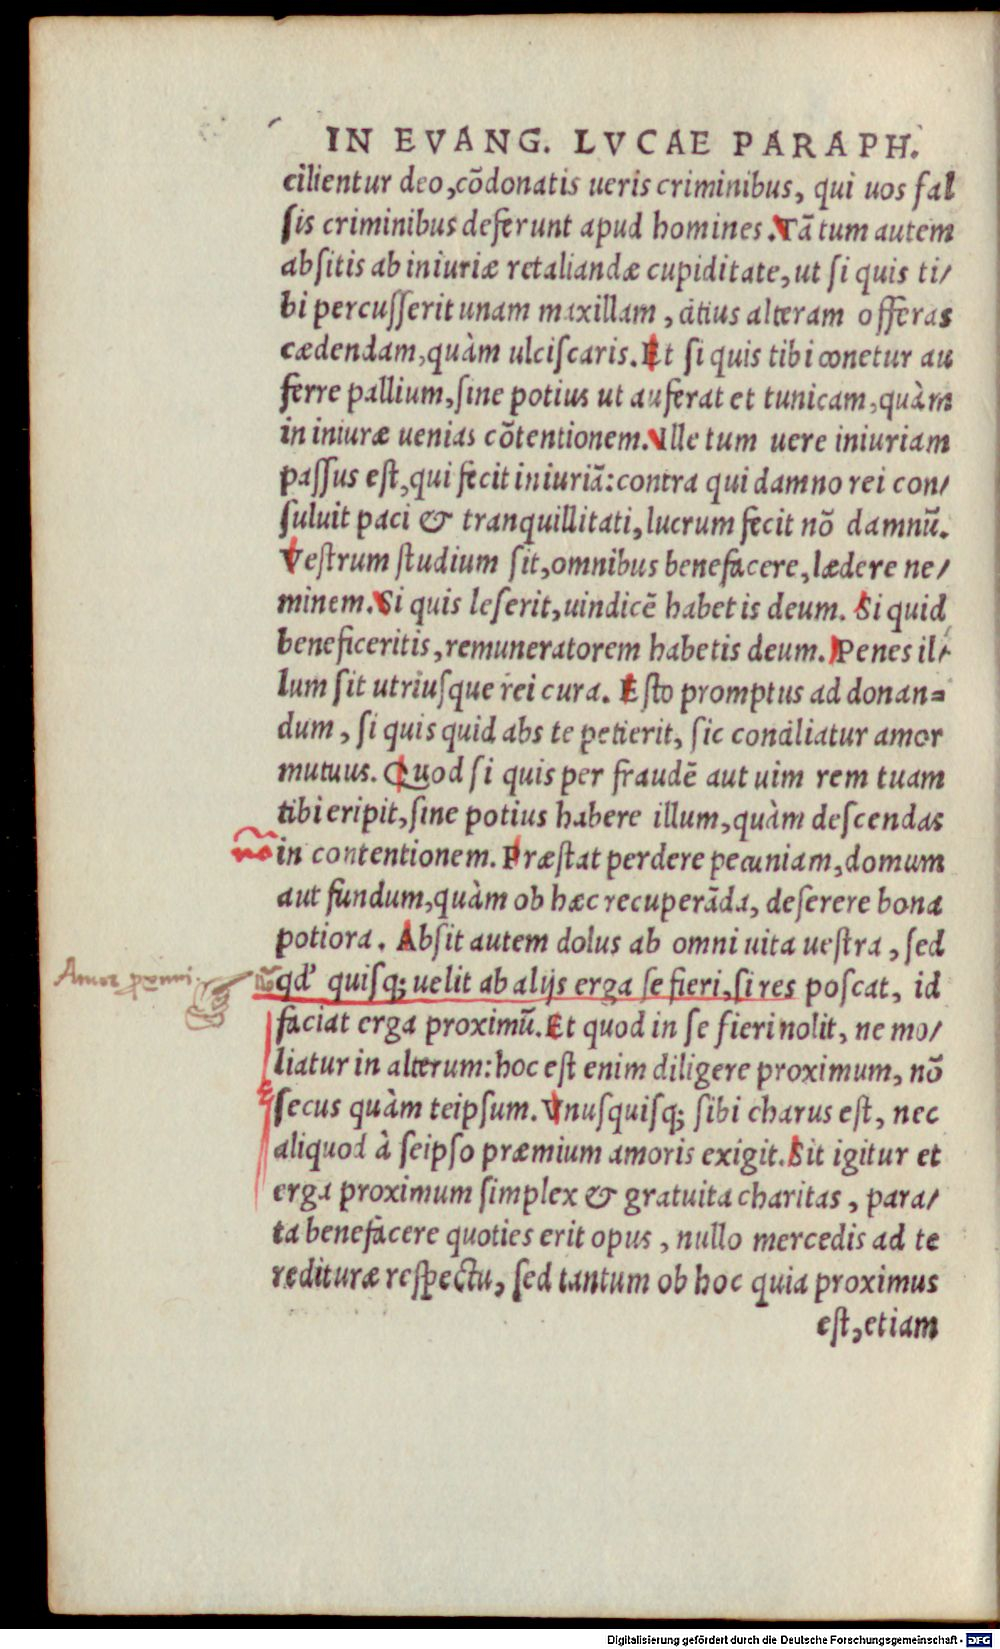 IN EVANG. LVCAE PARAPH.
cilientur deo, cõdonatis ueris criminibus, qui uos fal
ſis criminibus deferunt apud homines. Tã tum autem
abſitis ab iniuriæ retaliandæ cupiditate, ut ſi quis ti/
bi percuſſerit unam maxillam, citius alteram offeras
cædendam, quàm ulciſcaris. Et ſi quis tibi conetur au
ferre pallium, ſine potius ut auferat et tunicam, quàm
in iniuræ uenias cõtentionem. Ille tum uere iniuriam
paſſus eſt, qui fecit iniuriã: contra qui damno rei con/
ſuluit paci & tranquillitati, lucrum fecit nõ damnũ.
Veſtrum ſtudium ſit, omnibus benefacere, lædere ne/
minem. Si quis leſerit, uindicẽ habetis deum. Si quid
beneficeritis, remuneratorem habetis deum. Penes il/
lum ſit utriuſque rei cura. Eſto promptus ad donan=
dum, ſi quis quid abs te petierit, ſic conciliatur amor
mutuus. Quod ſi quis per fraudẽ aut uim rem tuam
tibi eripit, ſine potius habere illum, quàm deſcendas
in contentionem. Præſtat perdere pecuniam, domum
aut fundum, quàm ob hæc recuperãda, deſerere bona
potiora. Abſit autem dolus ab omni uita ueſtra, ſed
Amor proximi.
qd' quiſq; uelit ab alijs erga ſe fieri, ſi res poſcat, id
faciat erga proximũ. Et quod in ſe fieri nolit, ne mo/
liatur in alterum: hoc eſt enim diligere proximum, nõ
ſecus quàm teipſum. Vnuſquiſq; ſibi charus eſt, nec
aliquod à ſeipſo præmium amoris exigit. Sit igitur et
erga proximum ſimplex & gratuita charitas, para/
ta benefacere quoties erit opus, nullo mercedis ad te
redituræ reſpectu, ſed tantum ob hoc quia proximus
eſt, etiam
Digitalisierung gefördert durch die Deutsche Forschungsgemeinschaft - DFG